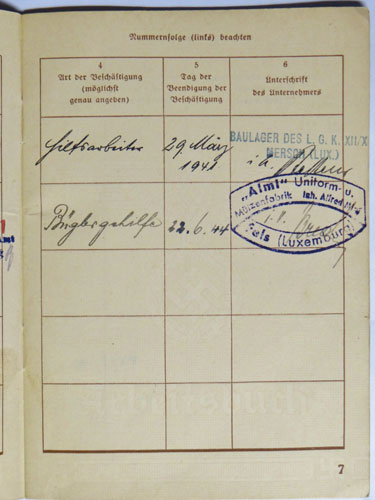 Nummernfolge (links) beachten
4
Art der Beschäftigung
(möglichst
genau angeben)
5
Tag der
Beendigung der
Beschäftigung
6
Unterschrift
des Unternehmers
Hilfsarbeiter
29 März
1941
BAULAGER DES L. G. K. XII/X
MERSCH (LUX.)
i.A.
Büglergehilfe
22.6.44
"Almi" Uniform- u.
Mützenfabrik Inh. Alfred
Fels (Luxemburg)
Arbeitsbuch
7